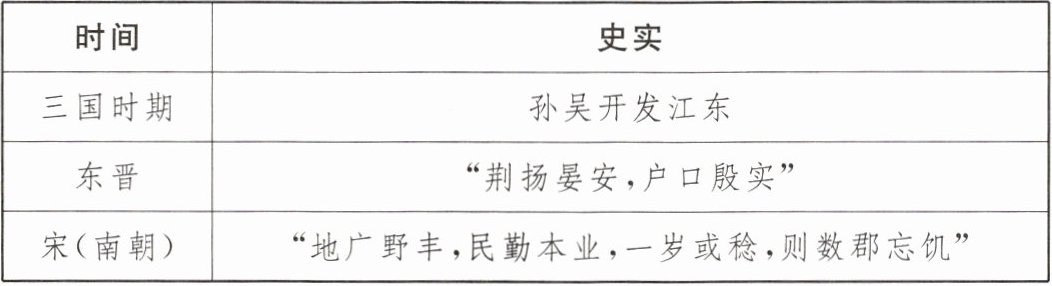 时间 史实
三国时期 孙吴开发江东
东晋 “荆扬晏安,户口殷实”
宋(南朝) “地广野丰,民勤本业,一岁或稔,则数郡忘饥”